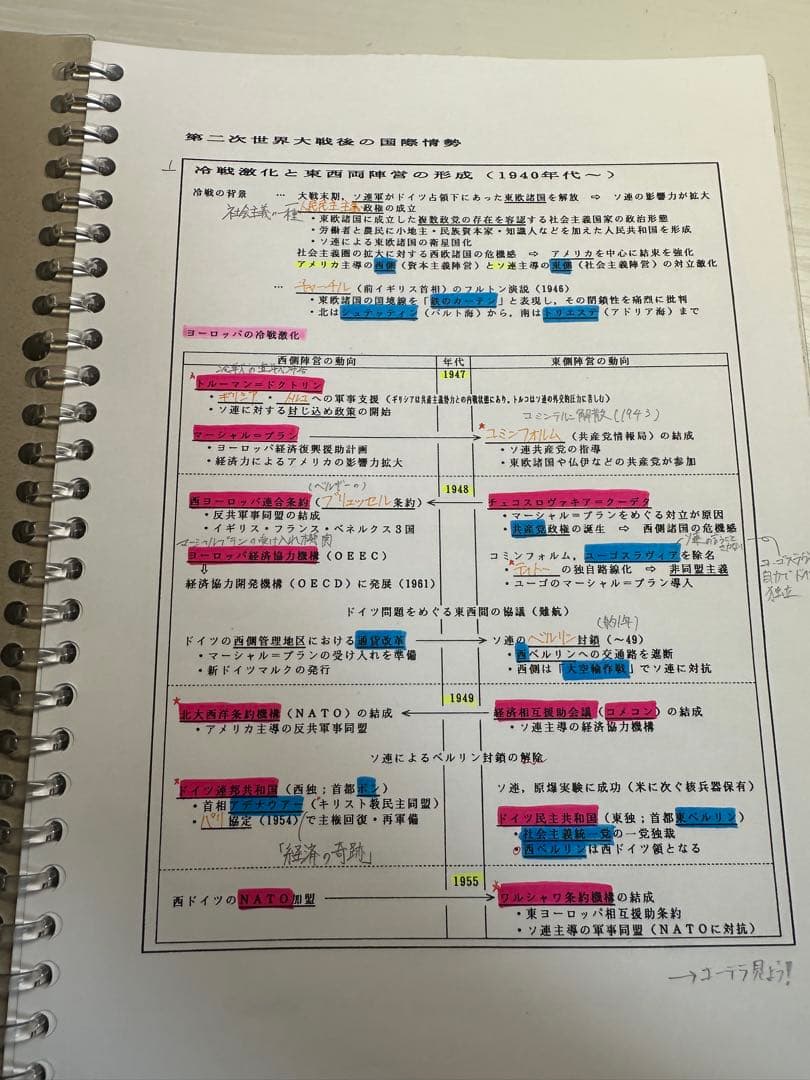 第二次世界大戦後の国際情勢
1
冷戦激化と東西両陣営の形成(1940年代~)
冷戦の背景 … 大戦末期,ソ連軍がドイツ占領下にあった東欧諸国を解放 ⇨ ソ連の影響力が拡大
社会主義の一種 人民民主主義政権の成立
・東欧諸国に成立した複数政党の存在を容認する社会主義国家の政治形態
・労働者と農民に小地主・民族資本家・知識人などを加えた人民共和国を形成
・ソ連による東欧諸国の衛星国化
社会主義圏の拡大に対する西欧諸国の危機感 ⇨ アメリカを中心に結束を強化
アメリカ主導の西側(資本主義陣営)とソ連主導の東側(社会主義陣営)の対立激化
… チャーチル(前イギリス首相)のフルトン演説(1946)
・東欧諸国の国境線を「鉄のカーテン」と表現し,その閉鎖性を痛烈に批判
・北はシュテッティン(バルト海)から,南はトリエステ(アドリア海)まで
ヨーロッパの冷戦激化
西側陣営の動向 年代 東側陣営の動向
1947
トルーマン=ドクトリン
・ギリシア・トルコへの軍事支援(ギリシアは共産主義勢力との内戦状態にあり,トルコはソ連の外交的圧力に苦しむ)
・ソ連に対する封じ込め政策の開始
コミンテルン解散(1943)
マーシャル=プラン → コミンフォルム(共産党情報局)の結成
・ヨーロッパ経済復興援助計画 ・ソ連共産党の指導
・経済力によるアメリカの影響力拡大 ・東欧諸国や仏伊などの共産党が参加
1948
(ベルギーの)
西ヨーロッパ連合条約(ブリュッセル条約) ← チェコスロヴァキア=クーデタ
・反共軍事同盟の結成 ・マーシャル=プランをめぐる対立が原因
・イギリス・フランス・ベネルクス3国 ・共産党政権の誕生 ⇨ 西側諸国の危機感
マーシャルプランの受け入れ機関
ヨーロッパ経済協力機構(OEEC) コミンフォルム,ユーゴスラヴィアを除名
⇩ ・ティトーの独自路線化 ⇨ 非同盟主義
経済協力開発機構(OECD)に発展(1961) ・ユーゴのマーシャル=プラン導入
独立
ドイツ問題をめぐる東西間の協議(難航)
(約1年)
ドイツの西側管理地区における通貨改革 → ソ連のベルリン封鎖(~49)
・マーシャル=プランの受け入れを準備 ・西ベルリンへの交通路を遮断
・新ドイツマルクの発行 ・西側は「大空輸作戦」でソ連に対抗
1949
北大西洋条約機構(NATO)の結成 ← 経済相互援助会議(コメコン)の結成
・アメリカ主導の反共軍事同盟 ・ソ連主導の経済協力機構
ソ連によるベルリン封鎖の解除
ドイツ連邦共和国(西独;首都ボン) ソ連,原爆実験に成功(米に次ぐ核兵器保有)
・首相アデナウアー(キリスト教民主同盟) ドイツ民主共和国(東独;首都東ベルリン)
・パリ協定(1954)で主権回復・再軍備 ・社会主義統一党の一党独裁
「経済の奇跡」 ・西ベルリンは西ドイツ領となる
1955
西ドイツのNATO加盟 → ワルシャワ条約機構の結成
・東ヨーロッパ相互援助条約
・ソ連主導の軍事同盟(NATOに対抗)